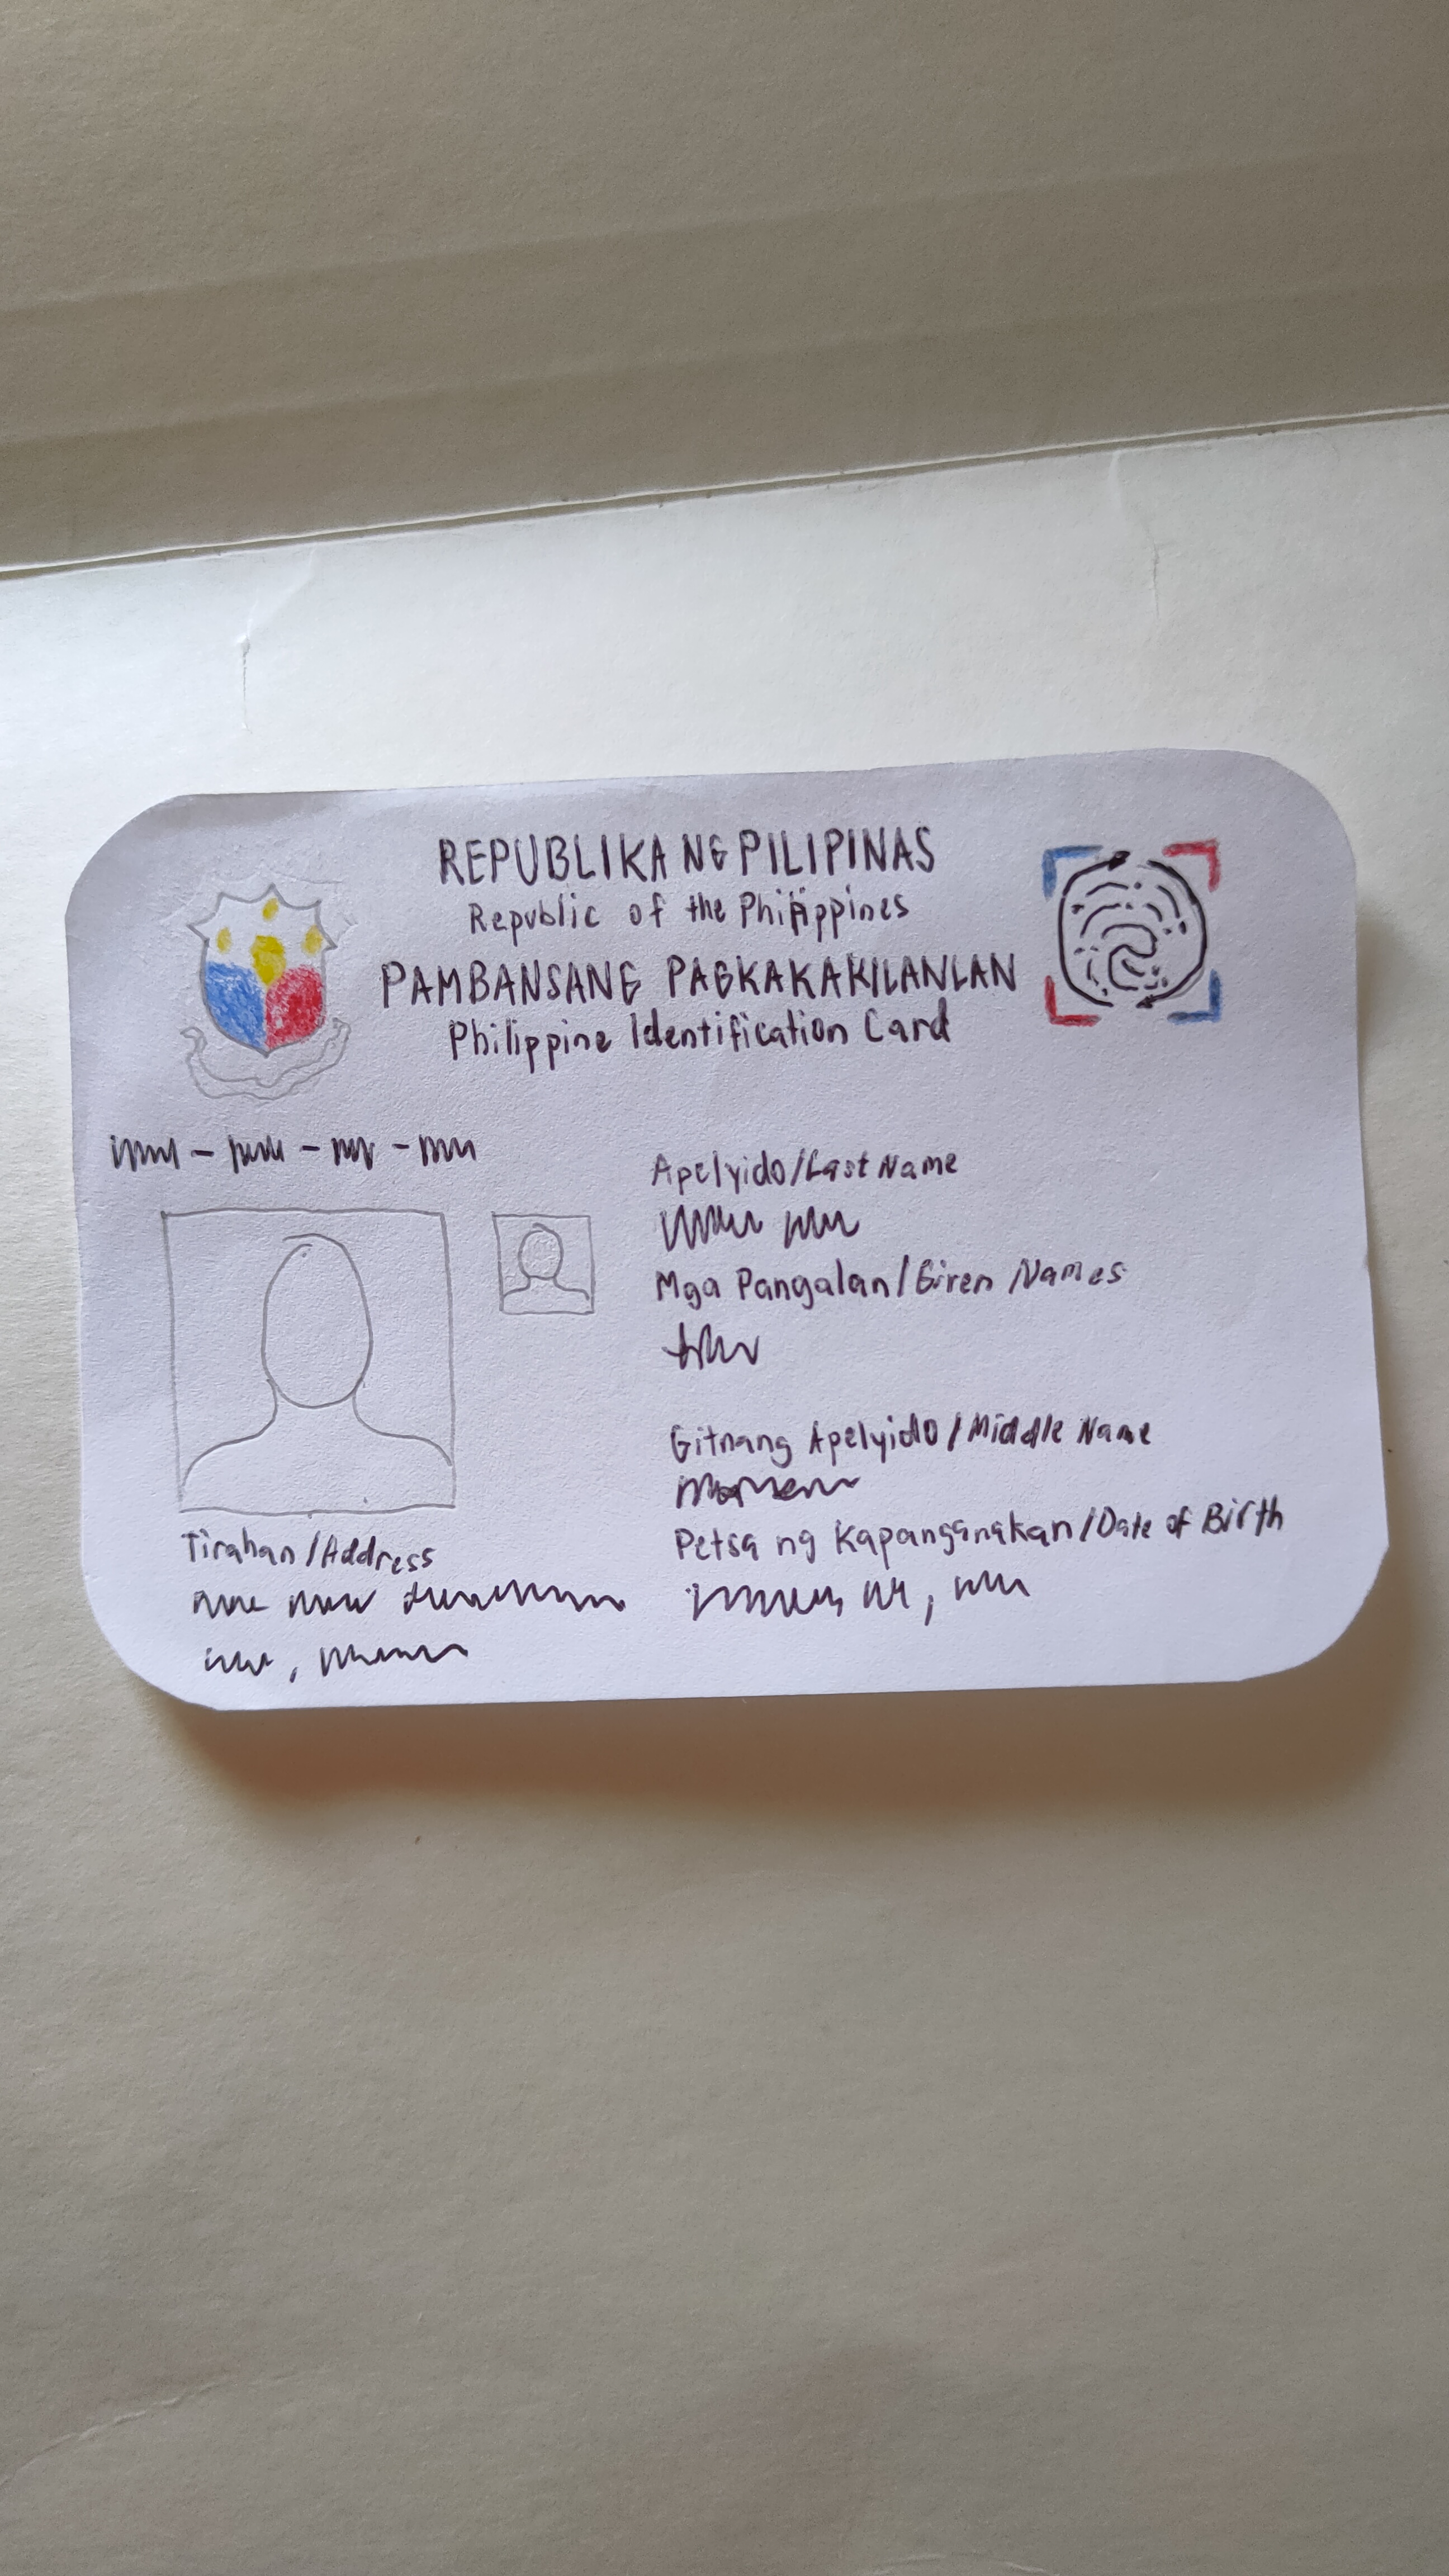 REPUBLIKA NG PILIPINAS
Republic of the Philippines
PAMBANSANG PAGKAKAKILANLAN
Philippine Identification Card
Apelyido/Last Name
Mga Pangalan/Given Names
Gitnang Apelyido/Middle Name
Petsa ng Kapanganakan/Date of Birth
Tirahan/Address